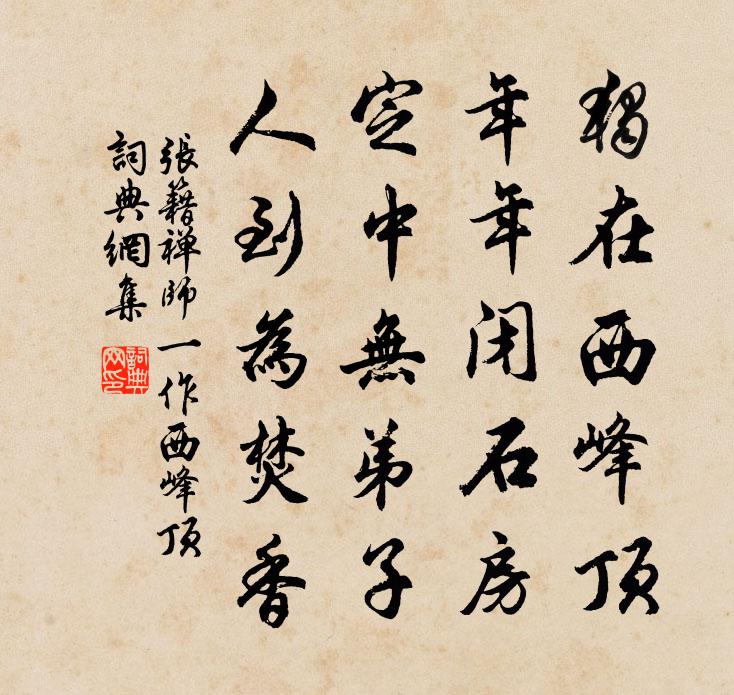 獨在西峰頂
年年闭石房
定中無弟子
人到為焚香
張籍禅師一作西峰顶
詞典網集
詞典網印